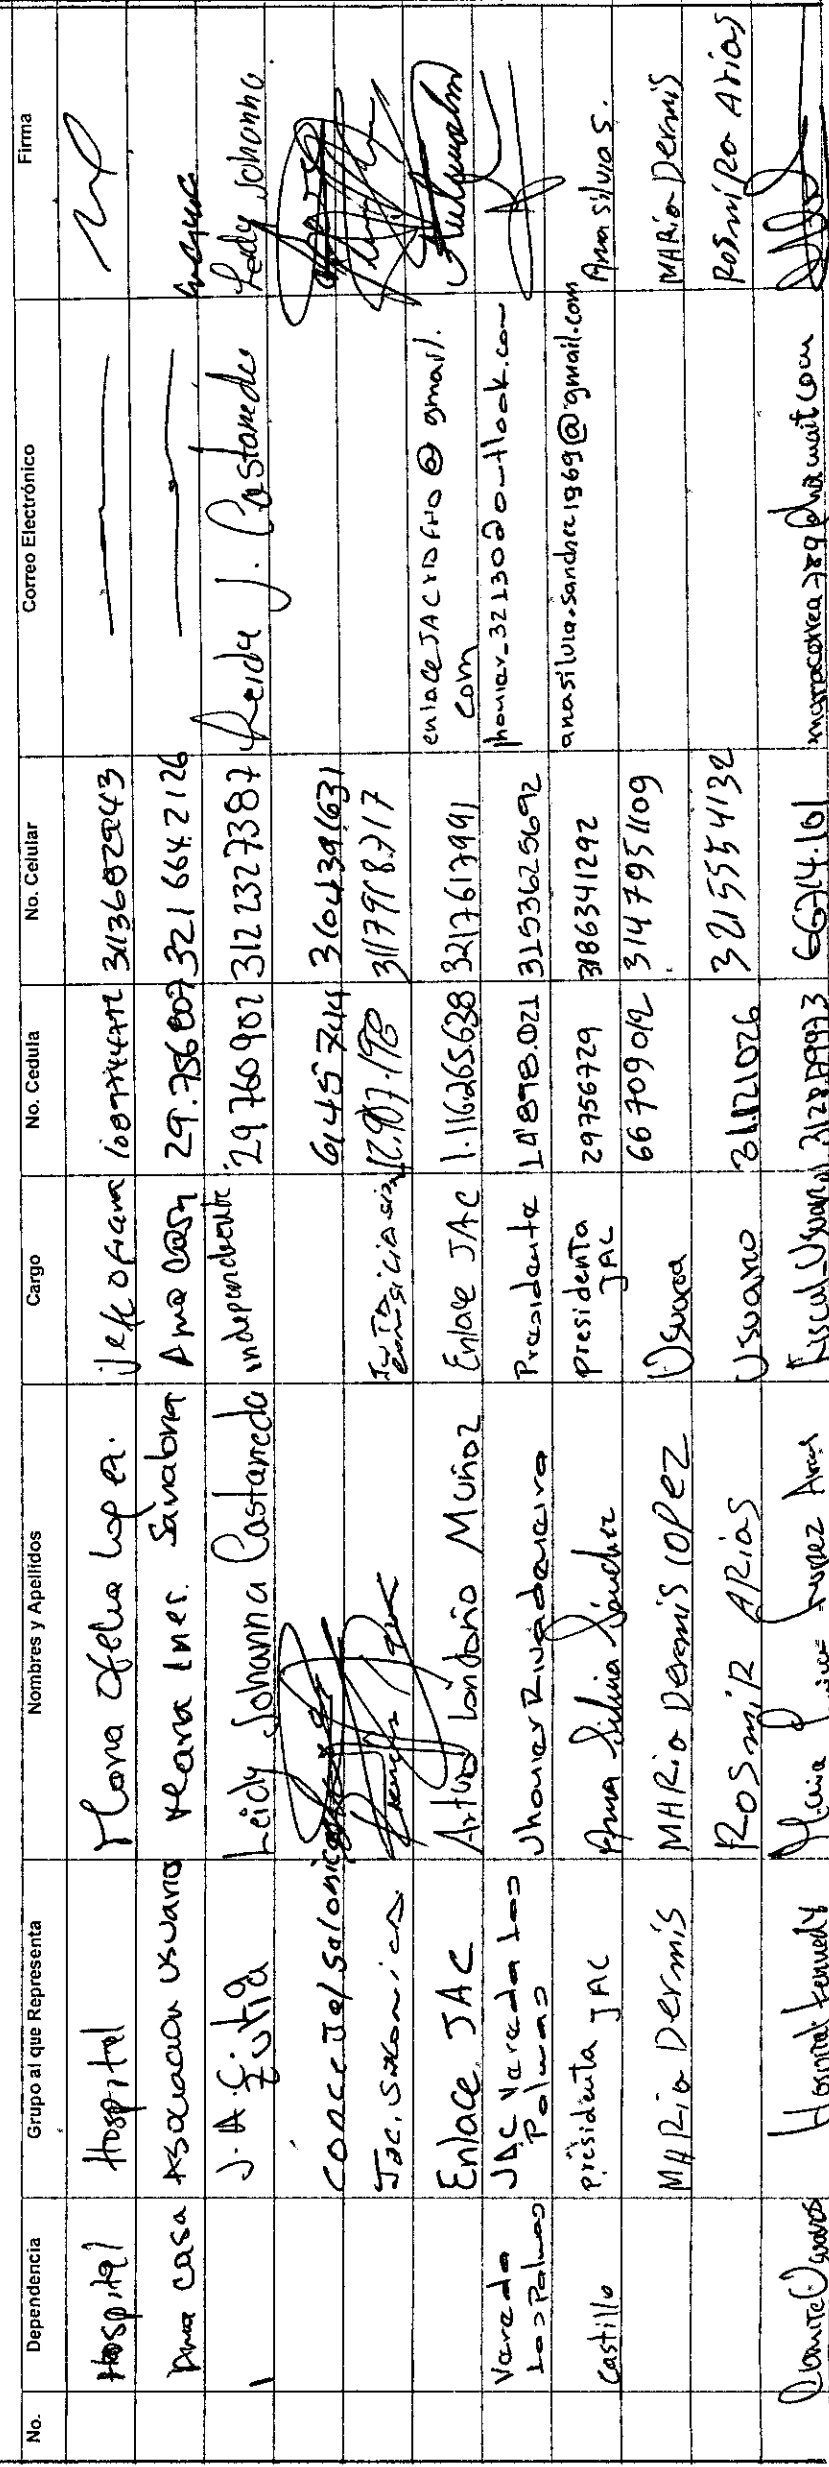 No. Dependencia Grupo al que Representa Nombres y Apellidos Cargo No. Cedula No. Celular Correo Electrónico Firma
Hospital Hospital Maria Ofelia Lopez. Jefe oficina 3136829243
Ama casa Asociacion usuario Maria Ines. Sanabria Ama Casa 29.756807 321 664 2126
J.A.C. Zutia Leidy Johanna Castañeda independiente 29760902 312 2327387 Leidy J. Castañeda Leidy Johanna.
Concejal Salonica 6145744 3104391631
Jac. Salonica 3117918717
Enlace JAC Arturo Londoño Muñoz Enlace JAC 1.116265.638 3217617991 @ gmail.
com
Vereda JAC Vereda Las Jhonier Rivadeneira Presidente 14'898.021 3153625692 jhonier_32130@outlook.com
Las Palmas Palmas
Castillo presidenta JAC Ana Silvia Sánchez presidenta 29756729 3186341292 anasilvia.sanchez1969@gmail.com Ana Silvia S.
JAC
MARia Dermis MARia Dermis lopez Usuaria 66709012 3147951109 MARia Dermis
Rosmira ARias Usuario 31.121026 3215554132 Rosmira Arias
Comite Usuarios Hospital Kennedy Maria Lopez Arias Fiscal Usuarios 66714.101